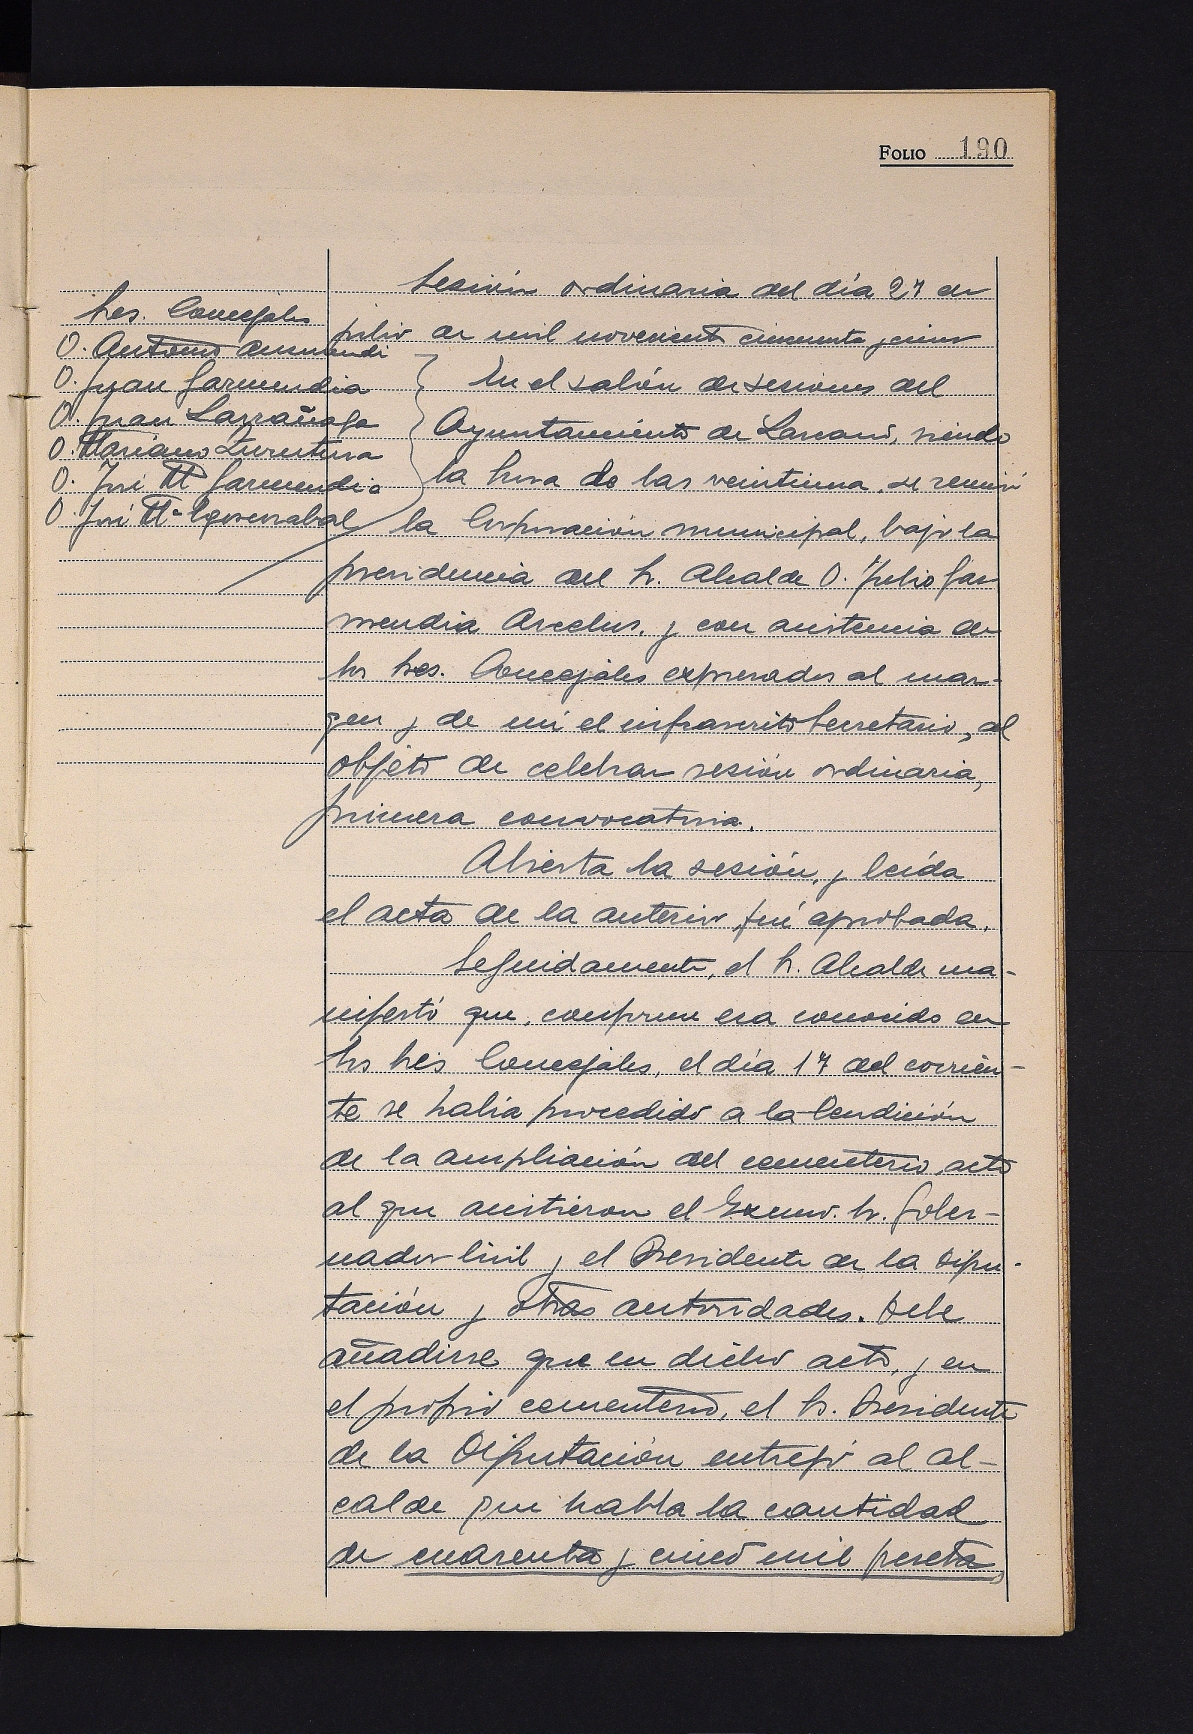 FOLIO 190
Sres. Concejales
D. Antonio
D. Juan Garmendia
D. Juan Larrañaga
D. Mariano Zurutuza
D. José Mª Garmendia
D. José Mª
Sesión ordinaria del día 27 de
julio de mil novecientos cincuenta y cinco
En el salón de sesiones del
Ayuntamiento de Lazcano, siendo
la hora de las veintiuna, se reunió
la Corporación municipal, bajo la
presidencia del Sr. Alcalde D. Julio Gar
mendia Arcelus, y con asistencia de
los Sres. Concejales expresados al mar-
gen y de mi el infrascrito Secretario, al
objeto de celebrar sesión ordinaria,
primera convocatoria.
Abierta la sesión, y leída
el acta de la anterior, fué aprobada.
Seguidamente, el Sr. Alcalde ma-
nifestó que, conforme era conocido de
los Sres Concejales, el día 17 del corrien-
te se había procedido a la bendición
de la ampliación del cementerio, acto
al que asistieron el Excmo. Sr. Gober-
nador Civil y el Presidente de la Dipu-
tación y otras autoridades. Debe
añadirse que en dicho acto, y en
el propio cementerio, el Sr. Presidente
de la Diputación entregó al al-
calde que habla la cantidad
de cuarenta y cinco mil pesetas